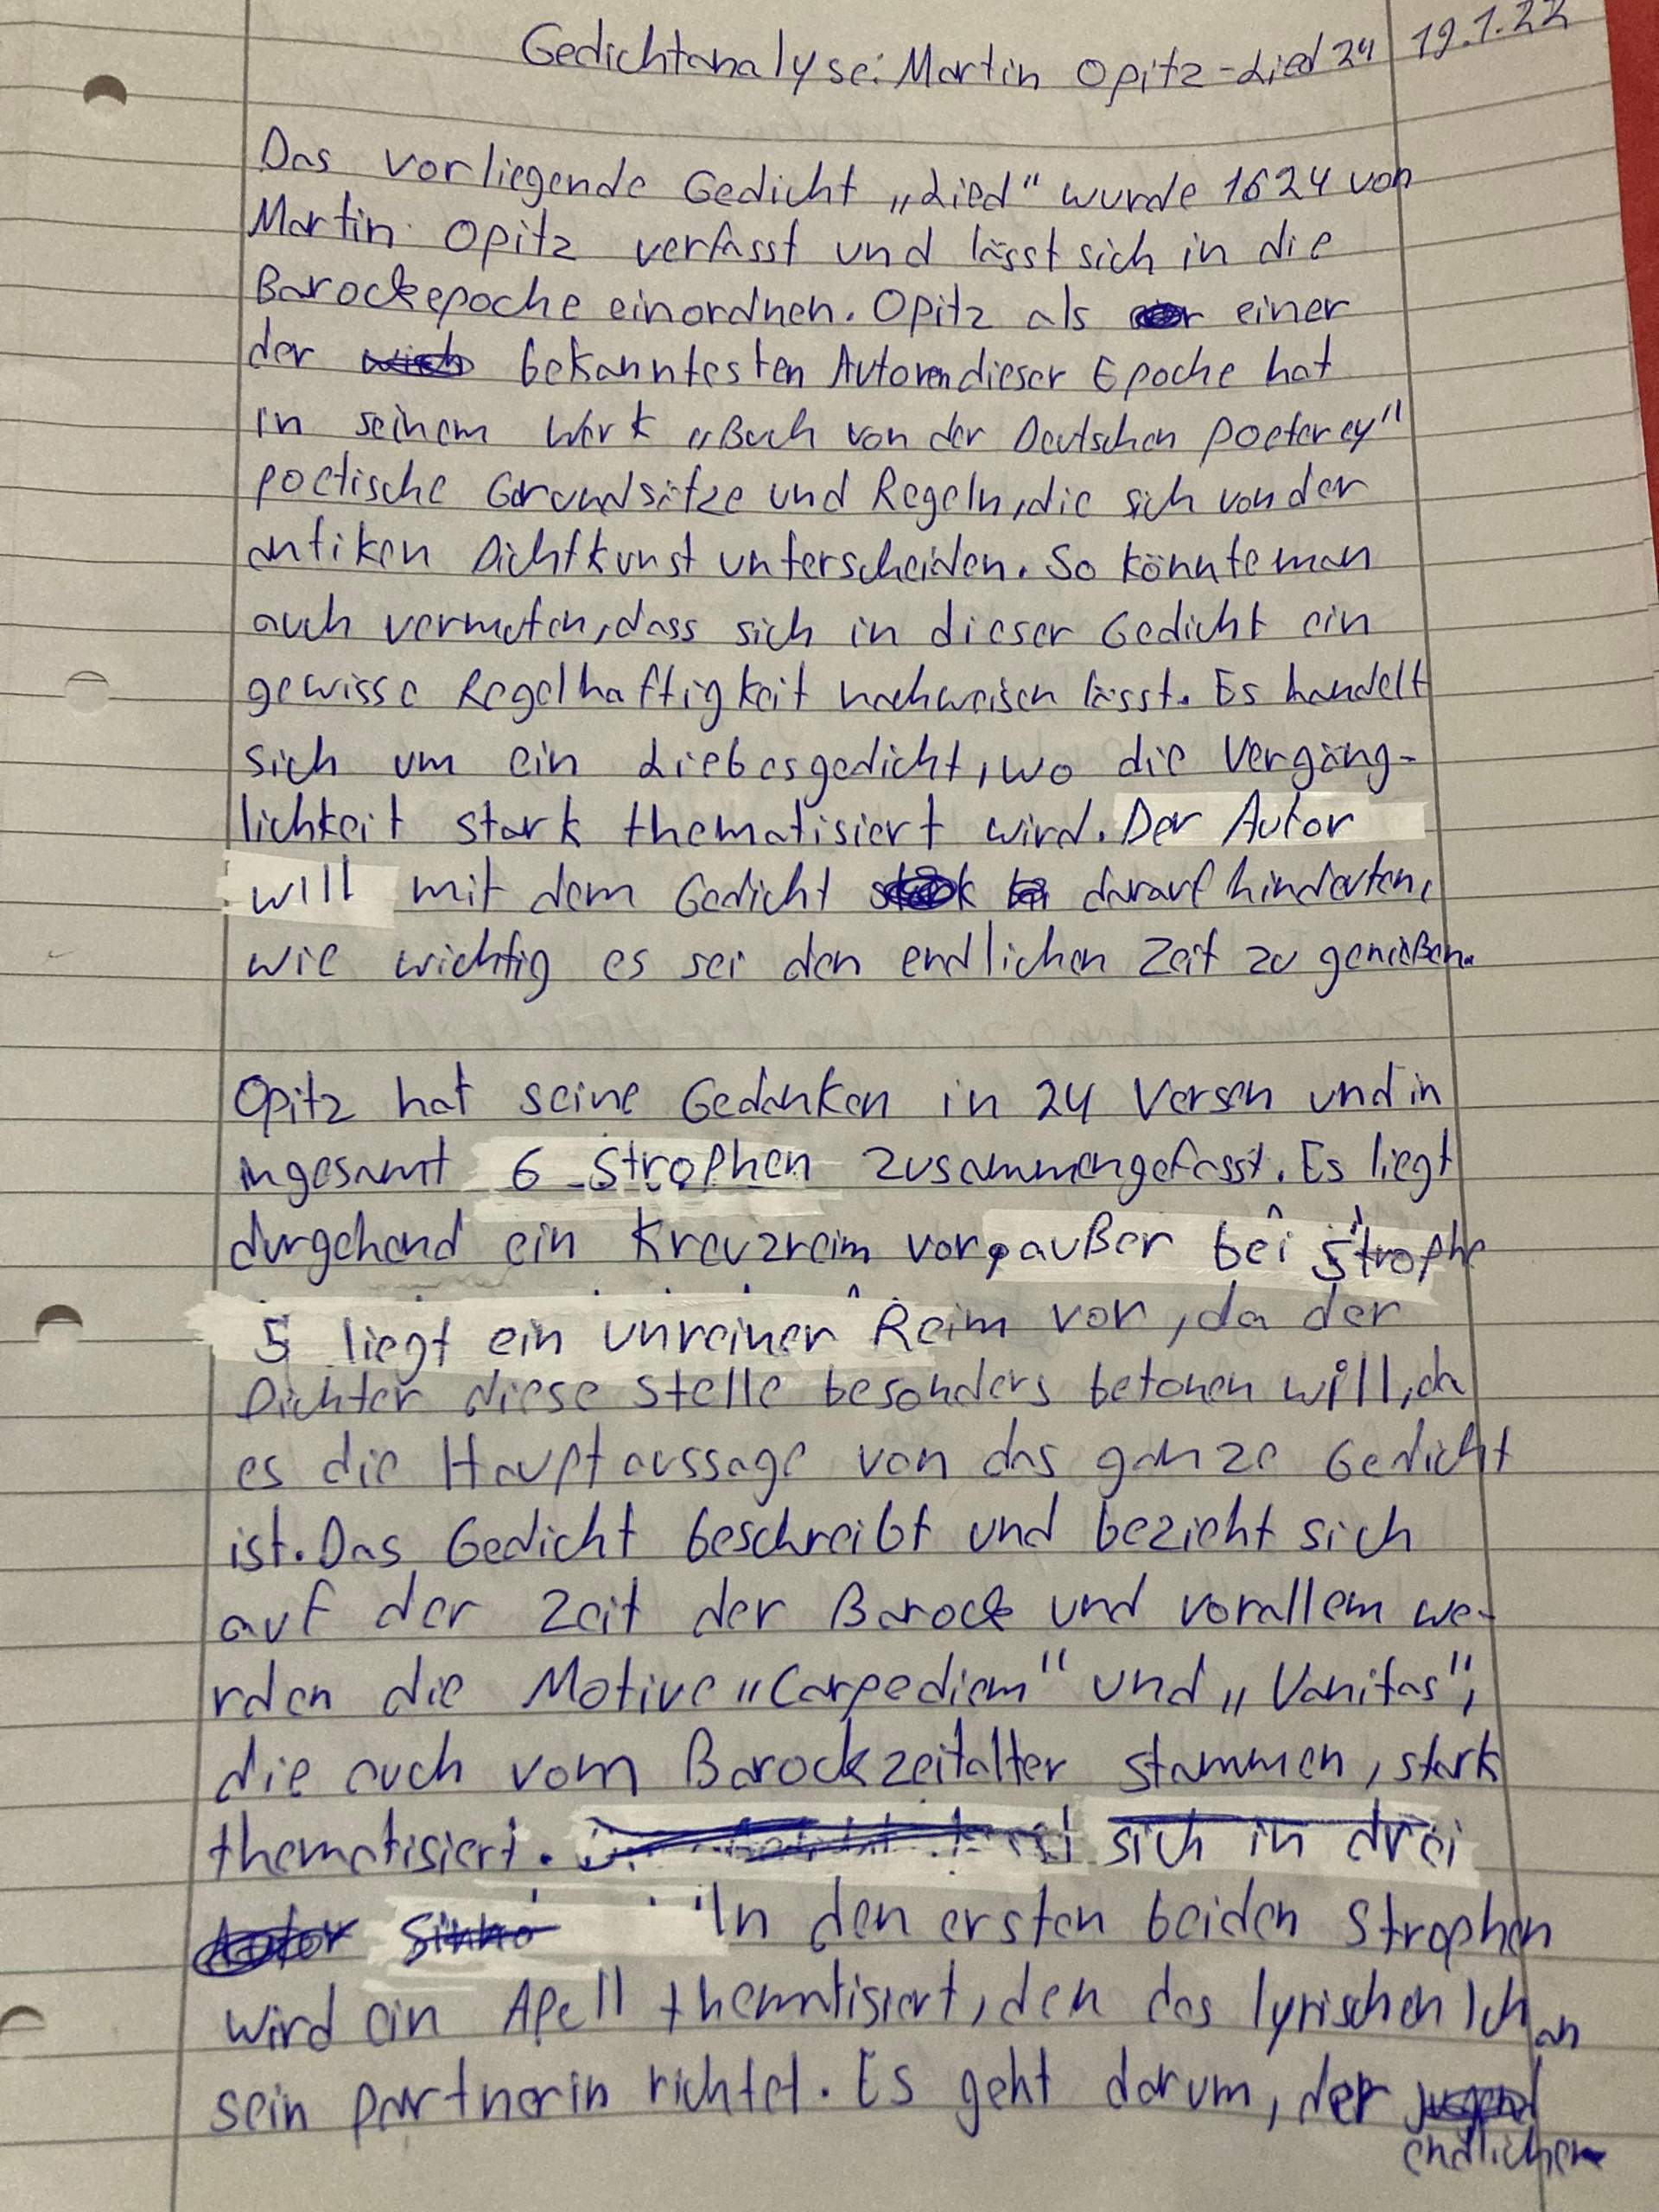 Gedichtanalyse: Martin Opitz - Lied 24 19.1.22
Das vorliegende Gedicht „Lied" wurde 1624 von
Martin Opitz verfasst und lässt sich in die
Barockepoche einordnen. Opitz als einer
der bekanntesten Autoren dieser Epoche hat
in seinem Werk „Buch von der Deutschen Poeterey"
poetische Grundsätze und Regeln, die sich von der
antiken Dichtkunst unterscheiden. So könnte man
auch vermuten, dass sich in dieser Gedicht ein
gewisse Regelhaftigkeit nachweisen lässt. Es handelt
sich um ein Liebesgedicht, wo die Vergäng-
lichkeit stark thematisiert wird. Der Autor
will mit dem Gedicht darauf hindeuten,
wie wichtig es sei den endlichen Zeit zu genießen.
Opitz hat seine Gedanken in 24 Versen und in
ingesamt 6 Strophen zusammengefasst. Es liegt
durgehend ein Kreuzreim vor, außer bei Strophe
5 liegt ein unreiner Reim vor, da der
Dichter diese Stelle besonders betonen will, da
es die Hauptaussage von das ganze Gedicht
ist. Das Gedicht beschreibt und bezieht sich
auf der Zeit der Barock und vorallem we-
rden die Motive „Carpediem" und „Vanitas",
die auch vom Barockzeitalter stammen, stark
thematisiert. sich in drei
In den ersten beiden Strophen
wird ein Apell thematisiert, den das lyrischen Ich an
sein partnerin richtet. Es geht darum, der
endlichen